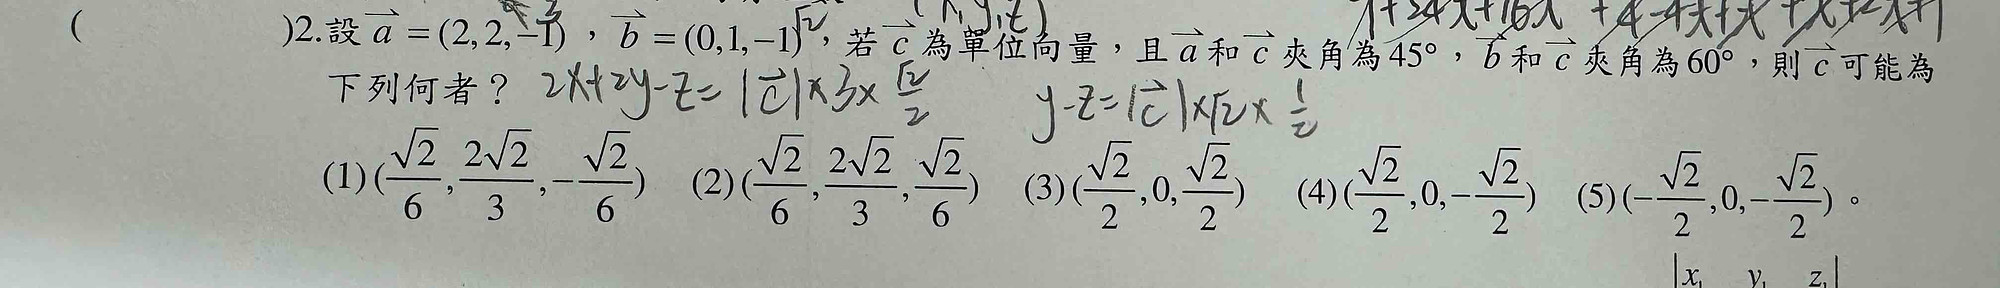 (x,y,z)
( )2.設 a⃗ = (2,2,-1),b⃗ = (0,1,-1) √2,若 c⃗ 為單位向量,且 a⃗ 和 c⃗ 夾角為45°,b⃗ 和 c⃗ 夾角為60°,則 c⃗ 可能為
下列何者? 2x+2y-z=|c⃗|×3×√2/2 y-z=|c⃗|×√2×1/2
(1)(√2/6, 2√2/3, -√2/6) (2)(√2/6, 2√2/3, √2/6) (3)(√2/2, 0, √2/2) (4)(√2/2, 0, -√2/2) (5)(-√2/2, 0, -√2/2)。
|x₁ y₁ z₁|